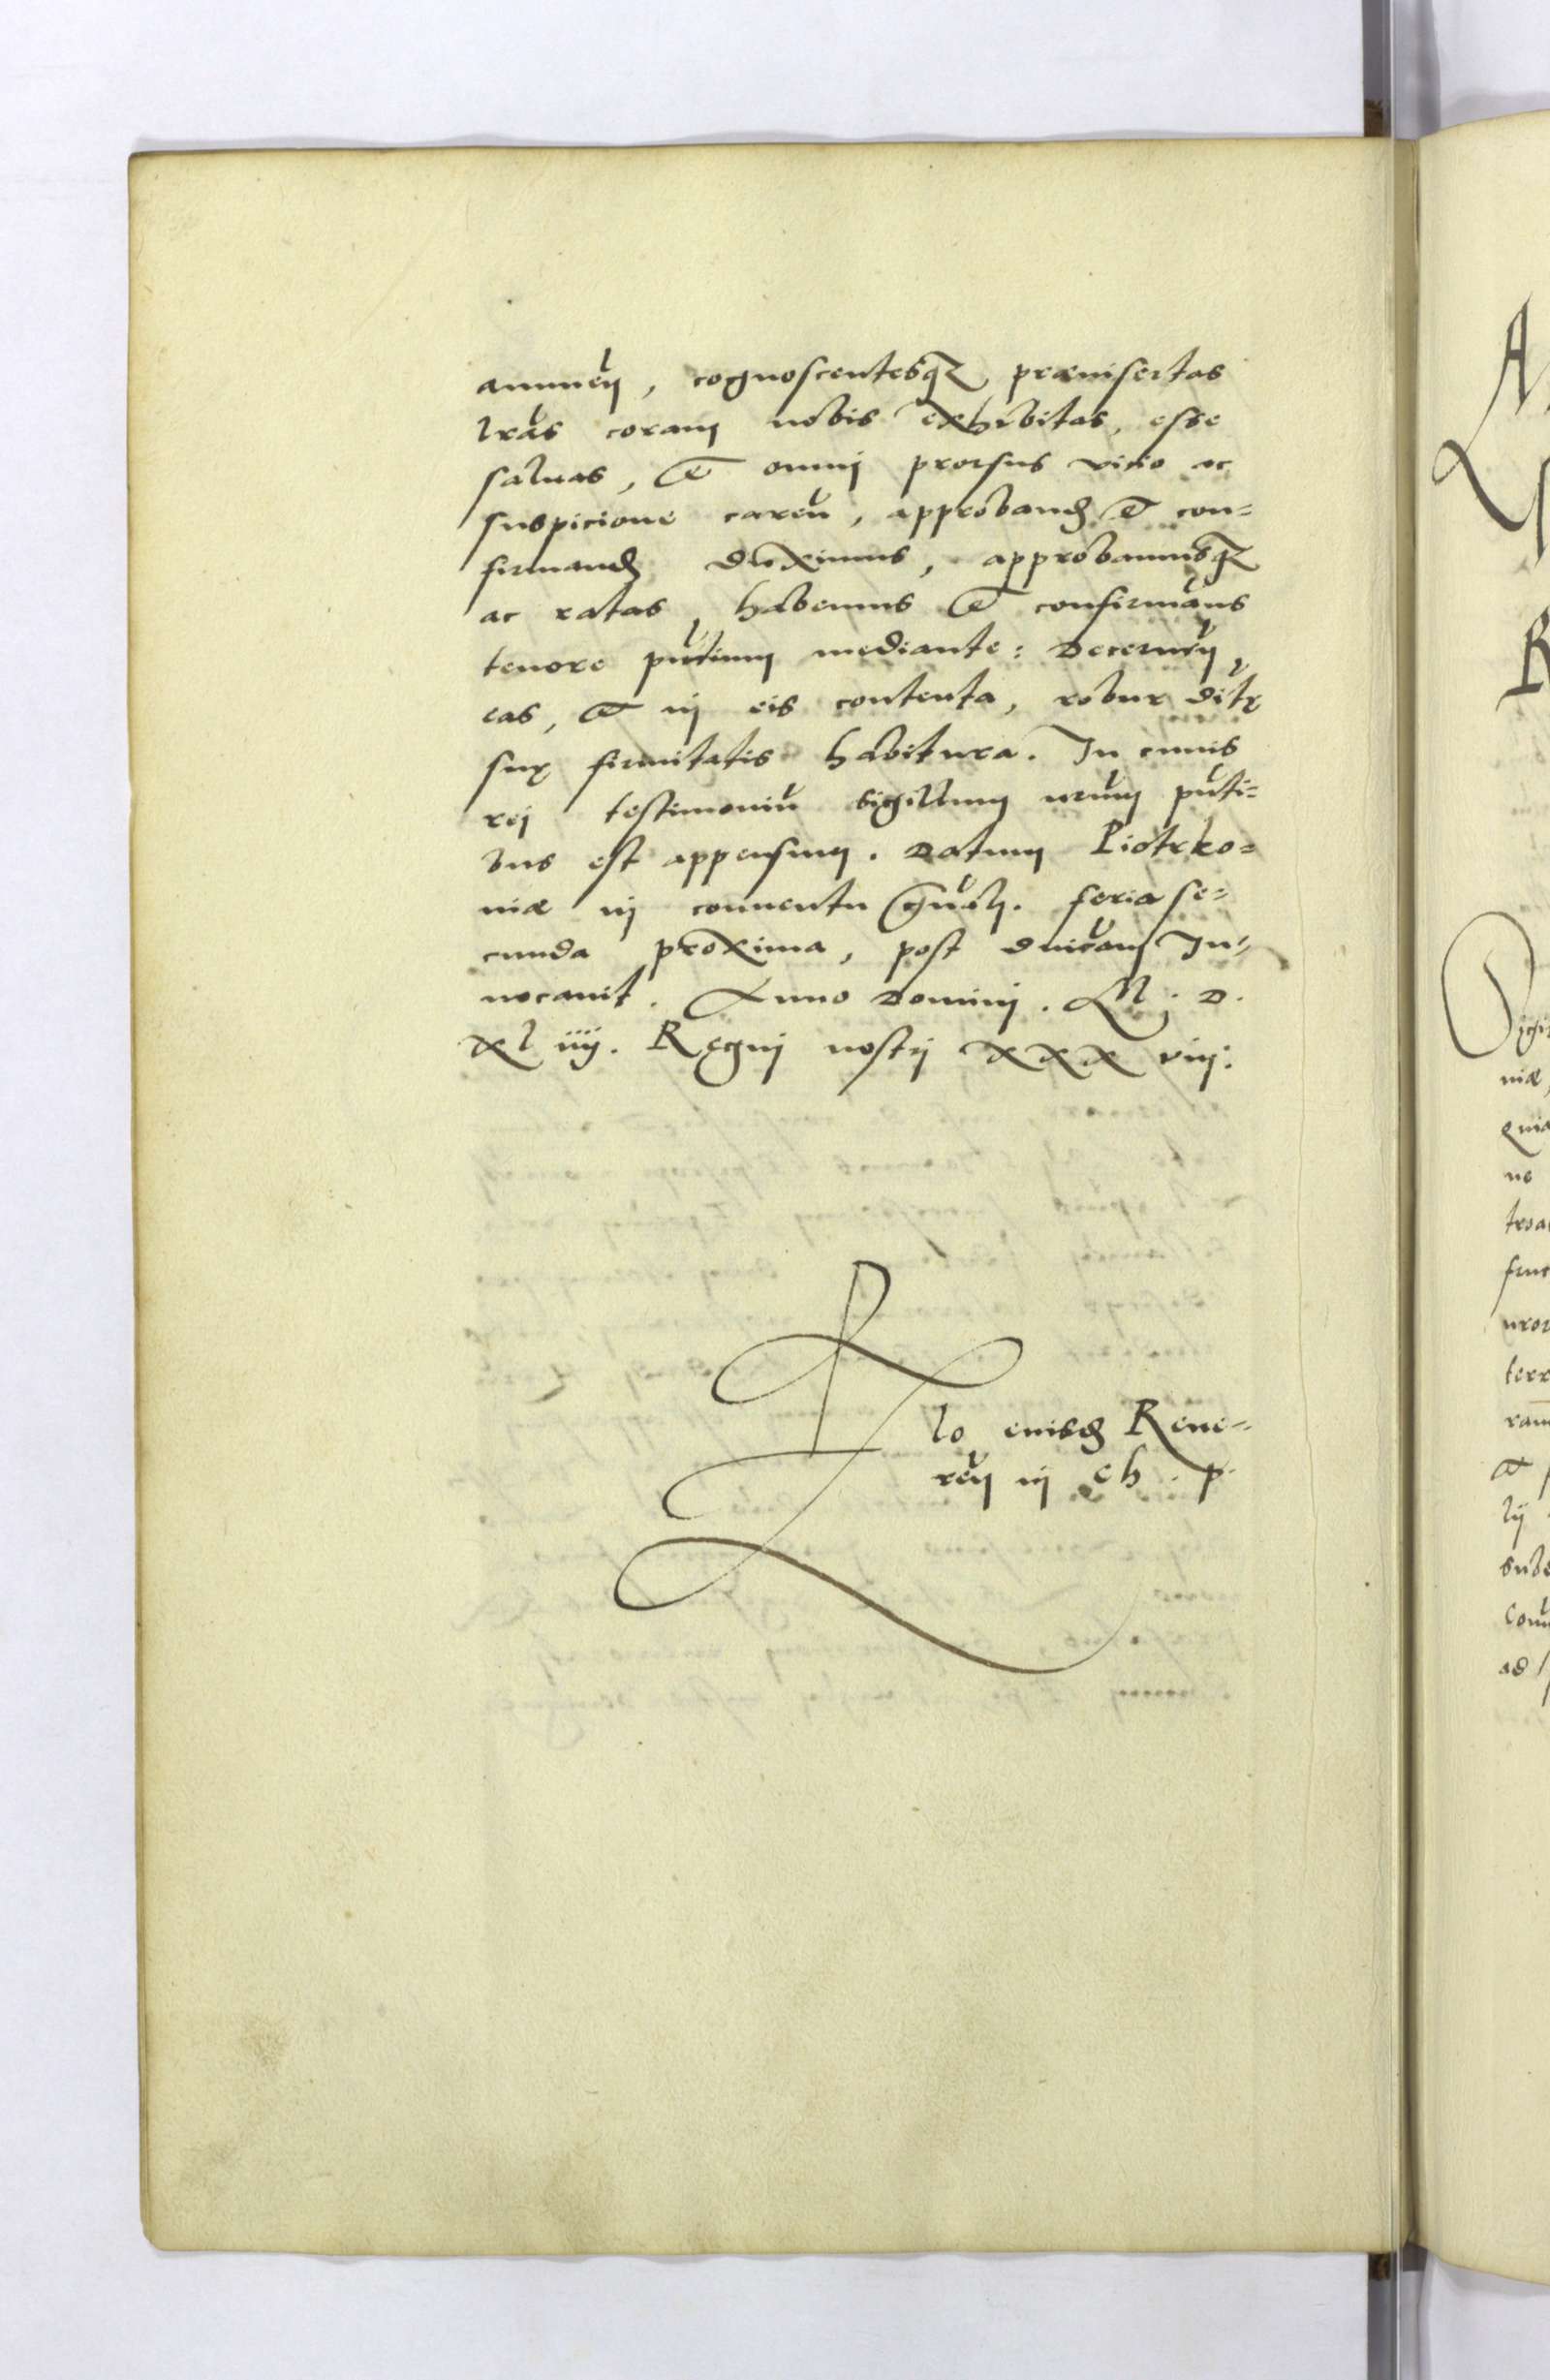 annueñ, cognoscentesq₃ præinsertas
lr̃as coram nobis exhibitas, esse
saluas, & omni prorsus vitio ac
suspicione careñ, approband & con=
firmand duximus, approbamusq₃
ac ratas habemus & confirmãus
tenore p̃ntium mediante: Decerneñ
eas, & in eis contenta, robur debitę
suę firmitatis habitura. In cuius
rei testimoniũ sigillum nr̃um p̃nti=
bus est appensum. Datum Piotrko=
uiæ in conuentu gñali. feria se=
cunda proxima, post dnicam In=
uocauit. Anno Domini. M. D.
xl iiij. Regni nostri xxx viij.
lo eiusd Reue=
reñ in ch. p.